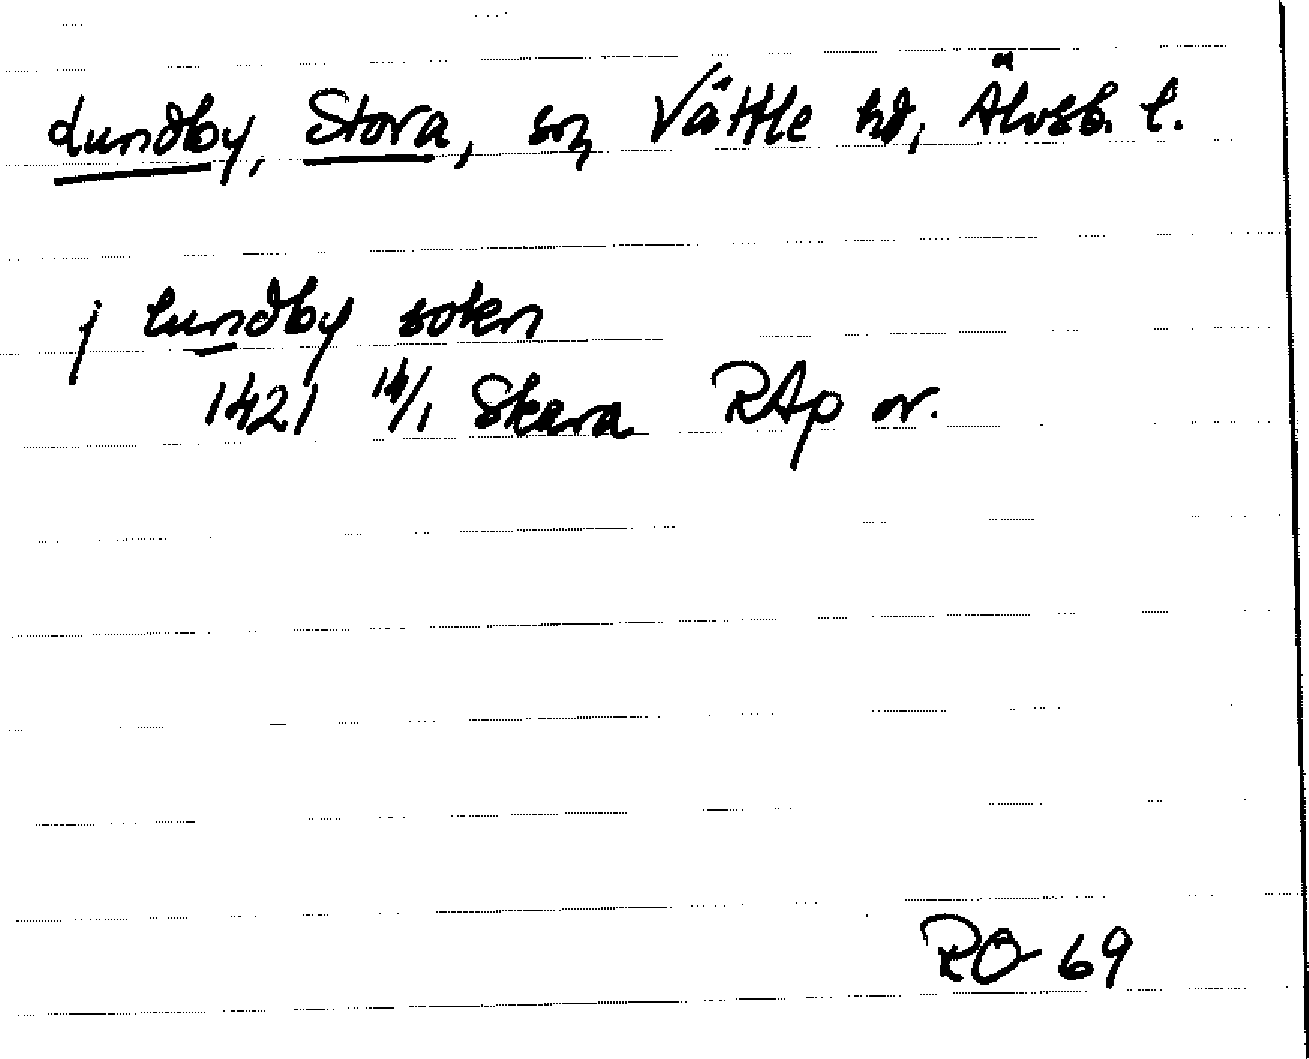 Lundby, Stora, sn, Vättle hd, Älvsb. l.
j lundby sokn
1421 14/1 Skara RAp or.
RO 69